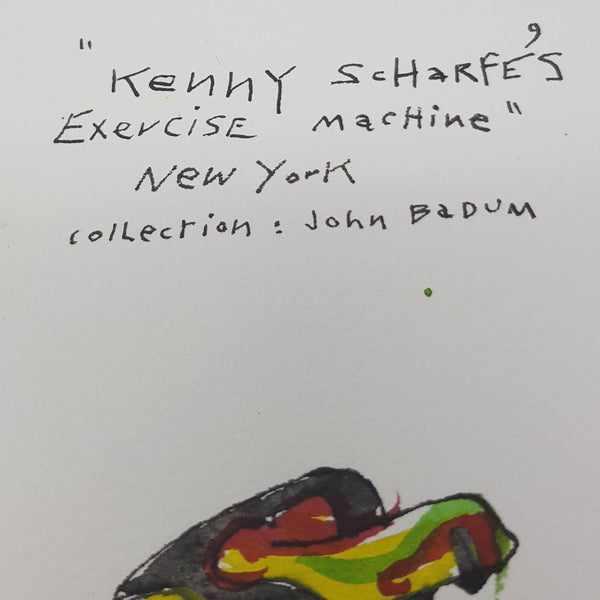 "Kenny Scharfe's
Exercise Machine"
New York
collection : John Badum